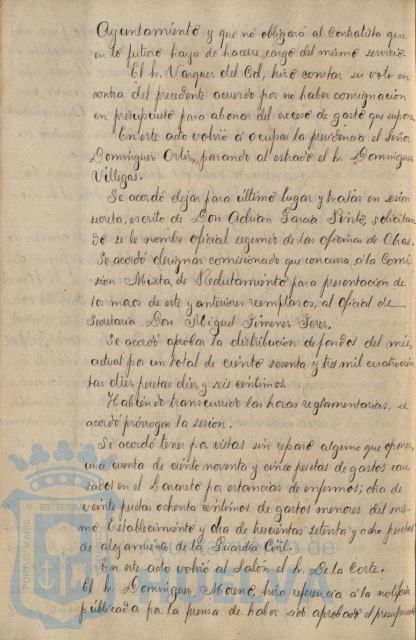 Ayuntamiento y que no obligará al Contratista que
en lo futuro haya de hacerse cargo del mismo servicio.
El Sr. Vazquez del Cid, hizo constar su voto en
contra del precedente acuerdo por no haber consignacion
en presupuesto para abonar del exceso de gasto que supone.
En este acto volvió á ocupar la presidencia el Señor
Dominguez Ortiz, pasando al estrado el Sr. Dominguez
Villegas.
Se acordó dejar para último lugar y tratar en sesion
secreta, escrito de Don Adrian Garcia Pinto, solicitan
do se le nombre oficial segundo de las oficinas de Obras.
Se acordó designar comisionado que concurra á la Comi
sion Mixta de Reclutamiento para presentacion de
los mozos de este y anteriores reemplazos, al oficial de
Secretaria Don Miguel Jimenez Perez.
Se acordó aprobar la distribucion de fondos del mes
actual por un total de ciento sesenta y tres mil cuatrocien
tas diez pesetas diez y seis centimos.
Habiendo transcurrido las horas reglamentarias, se
acordó prórrogar la sesión.
Se acordó tener por vistas sin reparo alguno que oponer,
una cuenta de ciento noventa y cinco pesetas de gastos cau
sados en el Lazareto por estancias de enfermos; otra de
veinte pesetas ochenta centimos de gastos menores del mis
mo Establecimiento y otra de trescientas setenta y ocho pesetas
de alojamiento de la Guardia Civil.
En este acto volvió al Salón el Sr. De la Corte.
El Sr. Dominguez Moreno hizo referencia á la noticia
publicada por la prensa de haber sido aprobado el presupuesto
PORTUS MARIS
ET TERRAE
Ayuntamiento de
HUELVA